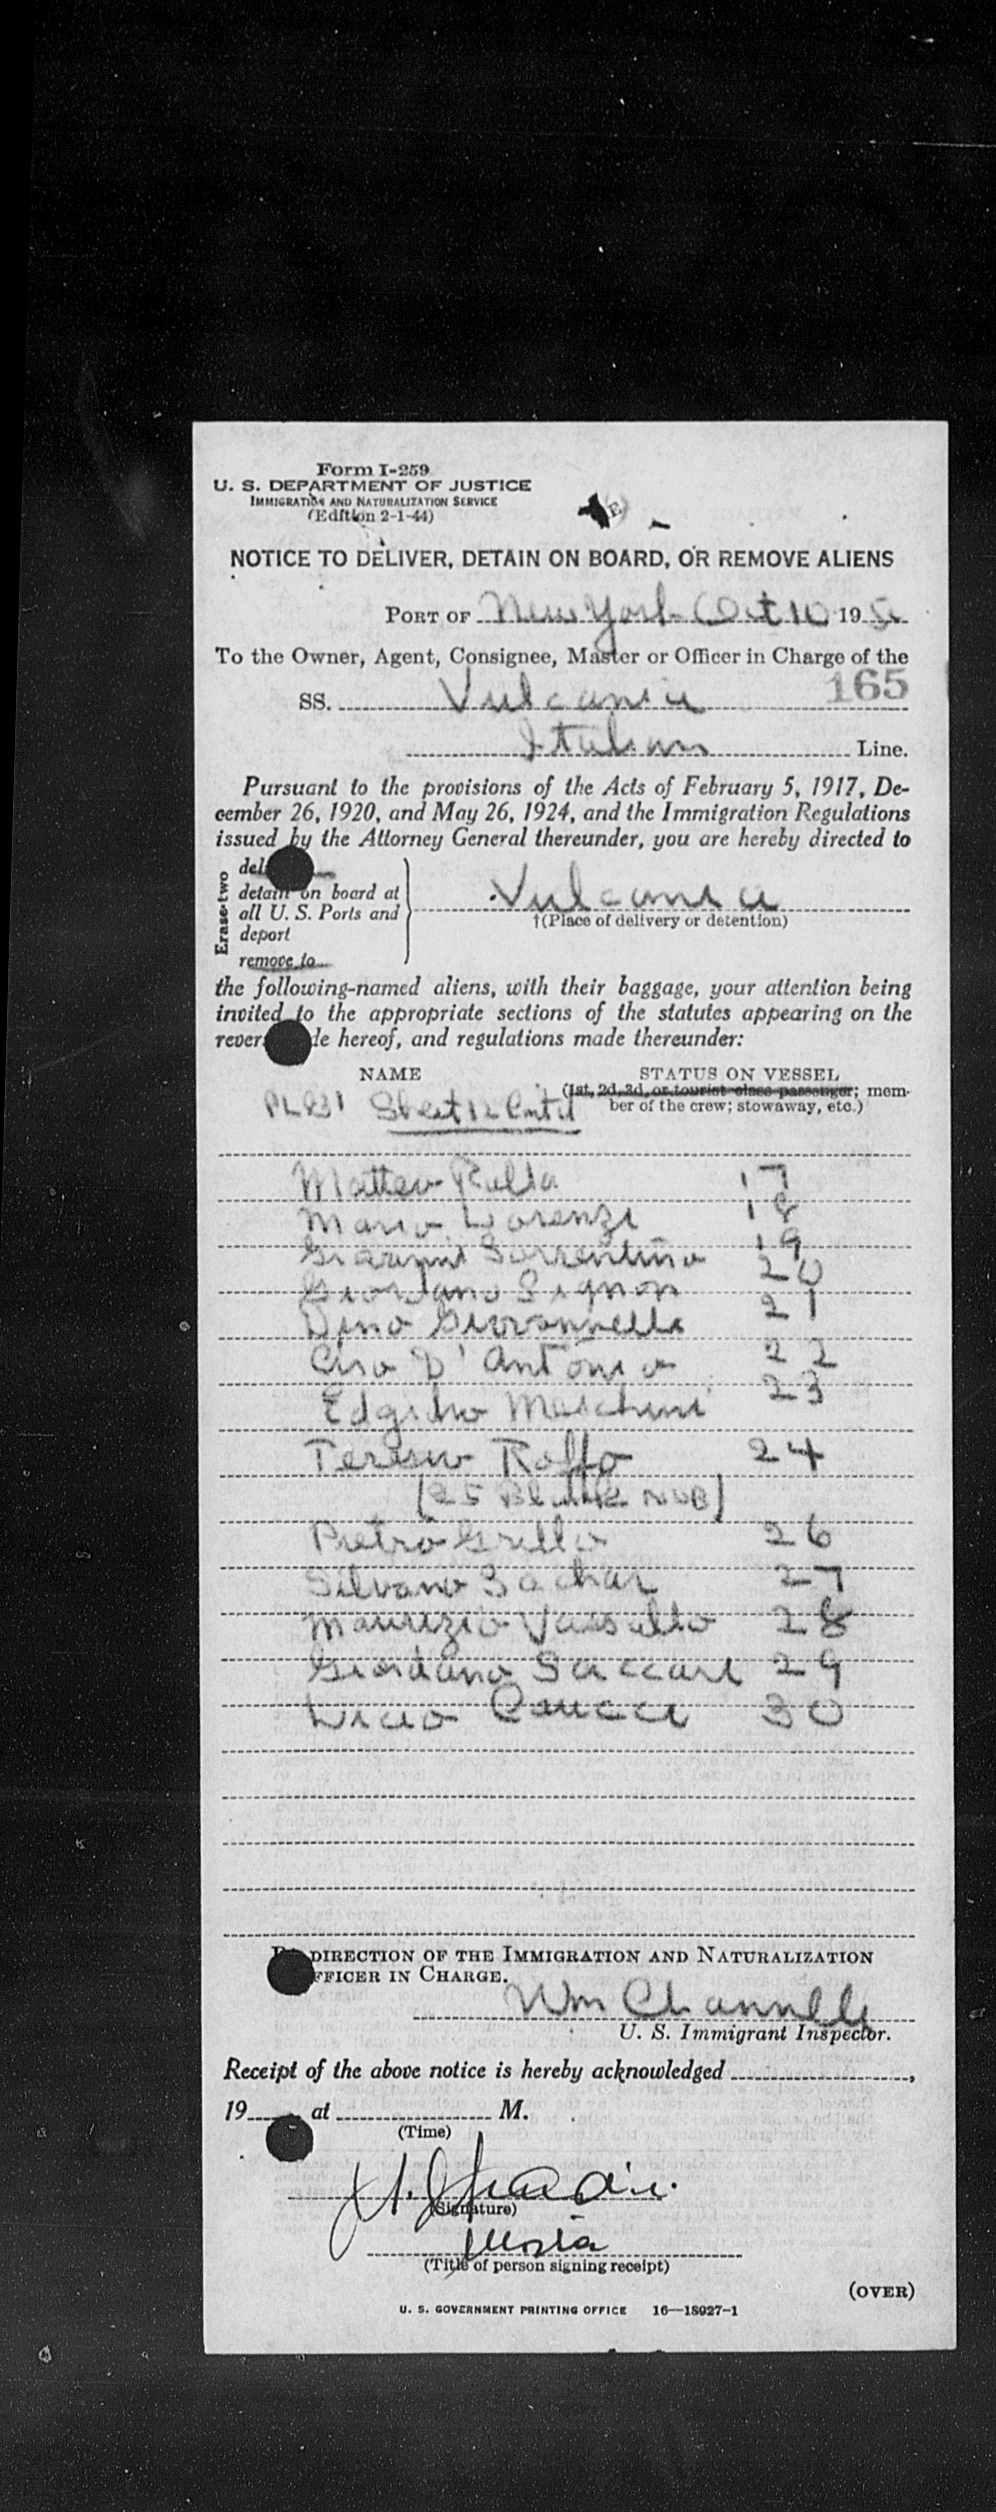 Form I-259
U. S. DEPARTMENT OF JUSTICE
IMMIGRATION AND NATURALIZATION SERVICE
(Edition 2-1-44)
NOTICE TO DELIVER, DETAIN ON BOARD, OR REMOVE ALIENS
PORT OF New York Oct 10 195
To the Owner, Agent, Consignee, Master or Officer in Charge of the
165
SS. Vulcania
Italian Line.
Pursuant to the provisions of the Acts of February 5, 1917, De-
cember 26, 1920, and May 26, 1924, and the Immigration Regulations
issued by the Attorney General thereunder, you are hereby directed to
Erase two
del
detain on board at
all U. S. Ports and
deport
remove to
Vulcania
†(Place of delivery or detention)
the following-named aliens, with their baggage, your attention being
invited to the appropriate sections of the statutes appearing on the
rever de hereof, and regulations made thereunder:
NAME STATUS ON VESSEL
(1st, 2d, 3d, or tourist class passenger; mem-
ber of the crew; stowaway, etc.)
Sheet 12 Cont'd
Matteo 17
Mario Lorenzi 18
Giovanni Sorrentino 19
Giordano Signon 20
Dino Giovannelli 21
Ciro D'Antonio 22
Egidio Meschini 23
Roffo 24
[25 Blank NOB]
Pietro Grillo 26
Silvano Sachar 27
Maurizio Vassallo 28
Giordano Saccari 29
Licio 30
BY DIRECTION OF THE IMMIGRATION AND NATURALIZATION
OFFICER IN CHARGE.
Wm Channell
U. S. Immigrant Inspector.
Receipt of the above notice is hereby acknowledged ,
19 at M.
(Time)
(Signature)
(Title of person signing receipt)
(OVER)
U. S. GOVERNMENT PRINTING OFFICE 16—18027-1